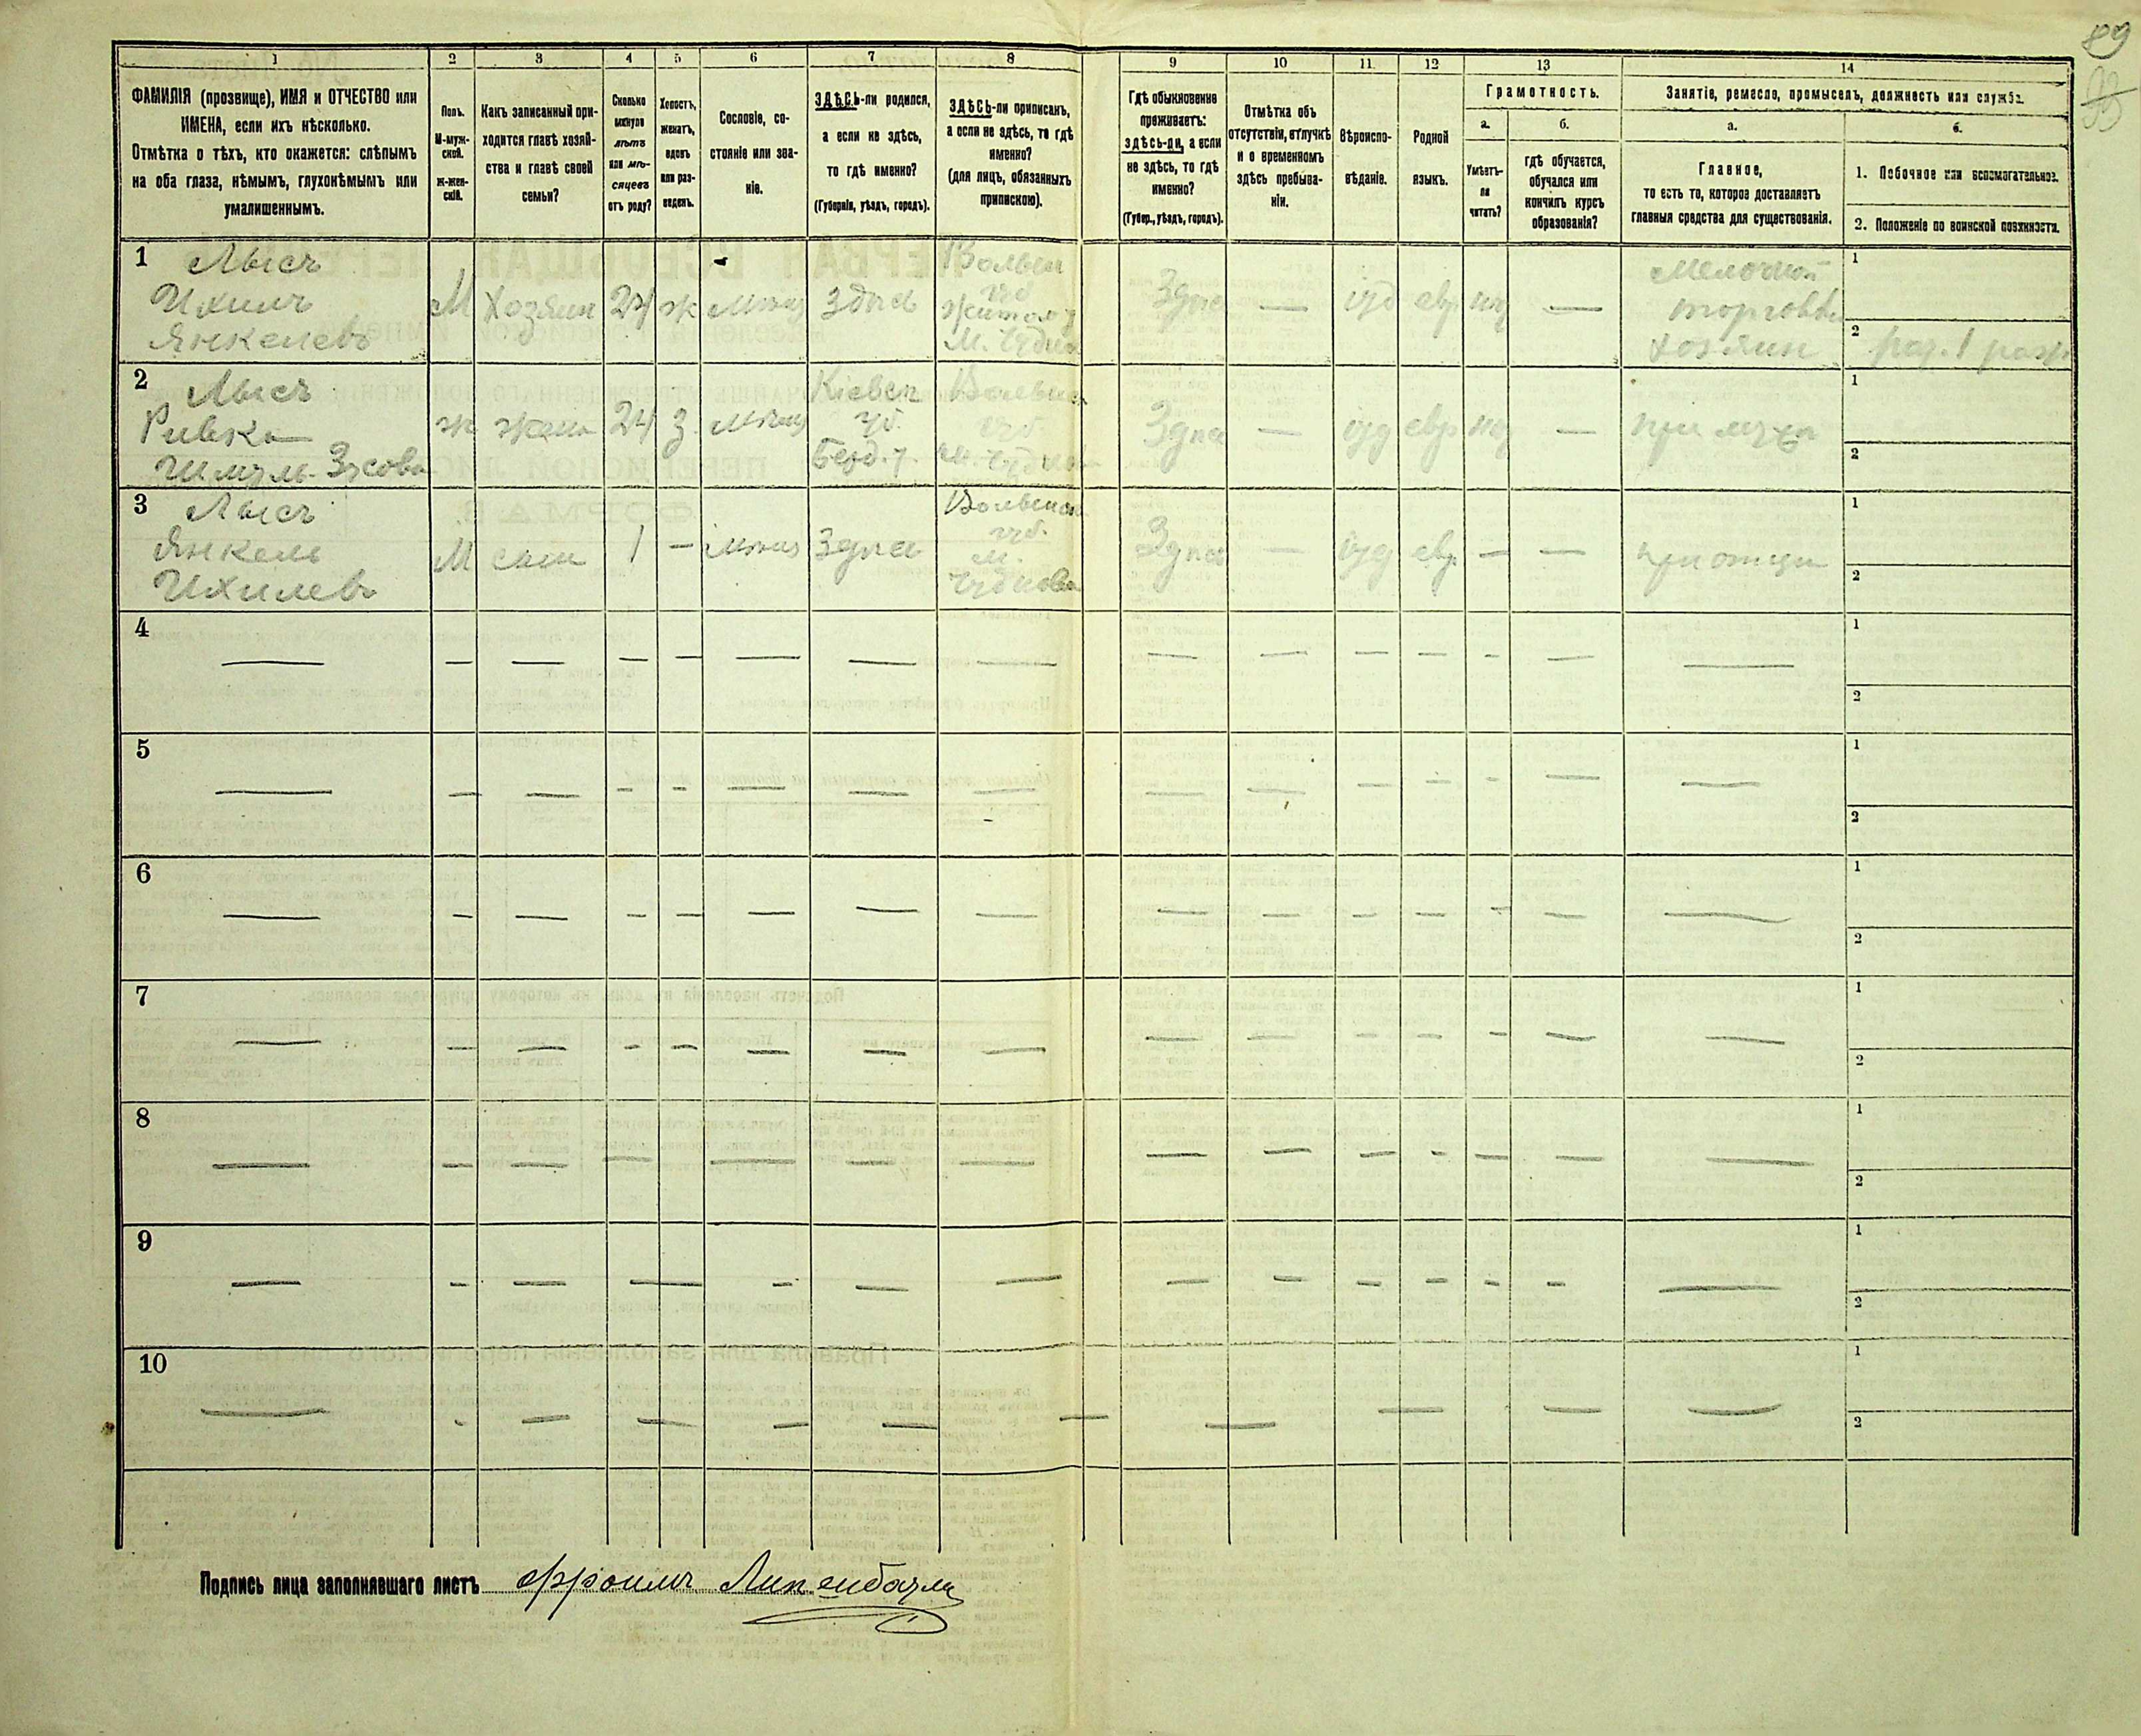 89
1
2
3
4
5
6
7
8
9
10
11
12
13
14
ФАМИЛІЯ (прозвище), ИМЯ и ОТЧЕСТВО или
ИМЕНА, если ихъ нѣсколько.
Отмѣтка о тѣхъ, кто окажется: слѣпымъ
на оба глаза, нѣмымъ, глухонѣмымъ или
умалишеннымъ.
Полъ.
М-муж-
ской.
Ж-жен-
скій.
Какъ записанный при-
ходится главѣ хозяй-
ства и главѣ своей
семьи?
Сколько
минуло
лѣтъ
или мѣ-
сяцевъ
отъ роду?
Холостъ,
женатъ,
вдовъ
или раз-
веденъ.
Сословіе, со-
стояніе или зва-
ніе.
ЗДѢСЬ-ли родился,
а если не здѣсь,
то гдѣ именно?
(Губернія, уѣздъ, городъ).
ЗДѢСЬ-ли приписанъ,
а если не здѣсь, то гдѣ
именно?
(для лицъ, обязанныхъ
припискою).
Гдѣ обыкновенно
проживаетъ:
здѣсь-ли, а если
не здѣсь, то гдѣ
именно?
(Губер., уѣздъ, городъ).
Отмѣтка объ
отсутствіи, отлучкѣ
и о временномъ
здѣсь пребыва-
ніи.
Вѣроиспо-
вѣданіе.
Родной
языкъ.
Грамотность.
а.
Умѣетъ-
ли
читать?
б.
гдѣ обучается,
обучался или
кончилъ курсъ
образованія?
Занятіе, ремесло, промыселъ, должность или служба.
а.
Главное,
то есть то, которое доставляетъ
главныя средства для существованія.
б.
1. Побочное или вспомогательное.
2. Положеніе по воинской повинности.
1 Лысъ
Ихилъ
Янкелевъ
М
Хозяин
24
ж
здѣсь
Волын
губ
М. Чудно
Здѣс
—
іуд
евр
—
Мелочной
торговл
хозяин
1
2
2 Лысъ
Ривка
Шмуль-Зусова
ж
жена
24
З.
Кіевск
губ.
Берд. у.
Волынск
губ.
м. Чудно
Здѣс
—
іуд
евр
—
при мужѣ
1
2
3 Лысъ
Янкель
Ихилевъ
М
сын
1
—
Здѣсь
Волынск
губ.
м.
Чуднова
Здѣс
—
іуд
евр.
—
—
при отцѣ
1
2
4
1
2
5
1
2
6
1
2
7
1
2
8
1
2
9
1
2
10
1
2
Подпись лица заполнявшаго листъ